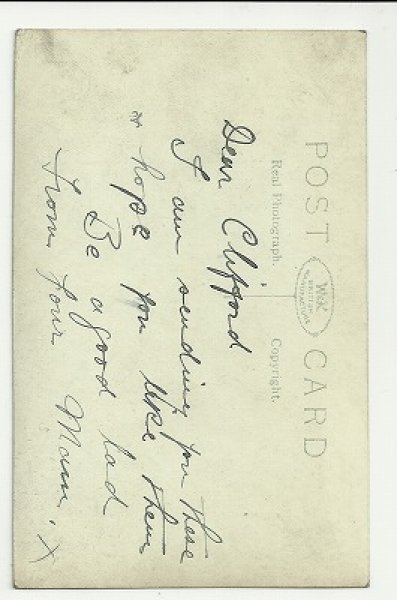 POST CARD
Real Photograph.
Copyright.
BRITISH
MANUFACTURE
Dear Clifford
I am sending you these
& hope you like them
Be a good lad
From Your Mam. X